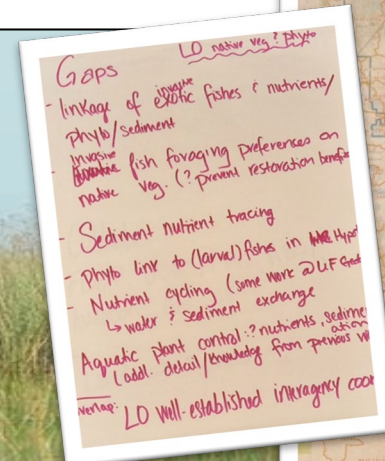 LO native veg ? phyto
Gaps
- linkage of invasive exotic fishes & nutrients/
phyto/sediment
- invasive fish foraging preferences on
native veg. (? prevent restoration benefits
- Sediment nutrient tracing
- Phyto link to (larval) fishes in
- Nutrient cycling (some work @ UF
↳ water & sediment exchange
Aquatic plant control: ? nutrients, sedime
ation
(addl. detail/knowledge from previous
LO well-established interagency